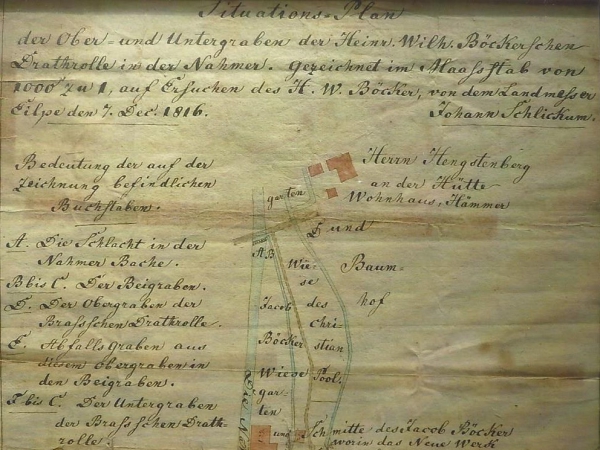 Situations=Plan
der Ober= und Untergraben der Heinr. Wilh. Böckerschen
Drathrolle in der Nahmer. Gezeichnet im Maassstab von
1000 zu 1, auf Ersuchen des H. W. Böcker, von dem Landmesser
Eilpe den 7. Dec. 1816. Johann Schlickum.
Bedeutung der auf der
Zeichnung befindlichen
Buchstaben.
A. Die Schlacht in der
Nahmer Bache.
B bis C. Der Beigraben.
D. Der Obergraben der
Brassschen Drathrolle.
E. Abfallsgraben aus
diesem Obergraben in
den Beigraben.
F bis C. Der Untergraben
der Brassschen Drath-
rolle.
Herrn Hengstenberg
an der Hütte
Wohnhaus, Hämmer
und
Baum-
hof
garten
D
A B
Wie-
se
des
chri-
stian
Pool.
Jacob
Böcker
Wiese
gar-
ten
und
Schmitte des Jacob Böcker
worin das Neue Werk